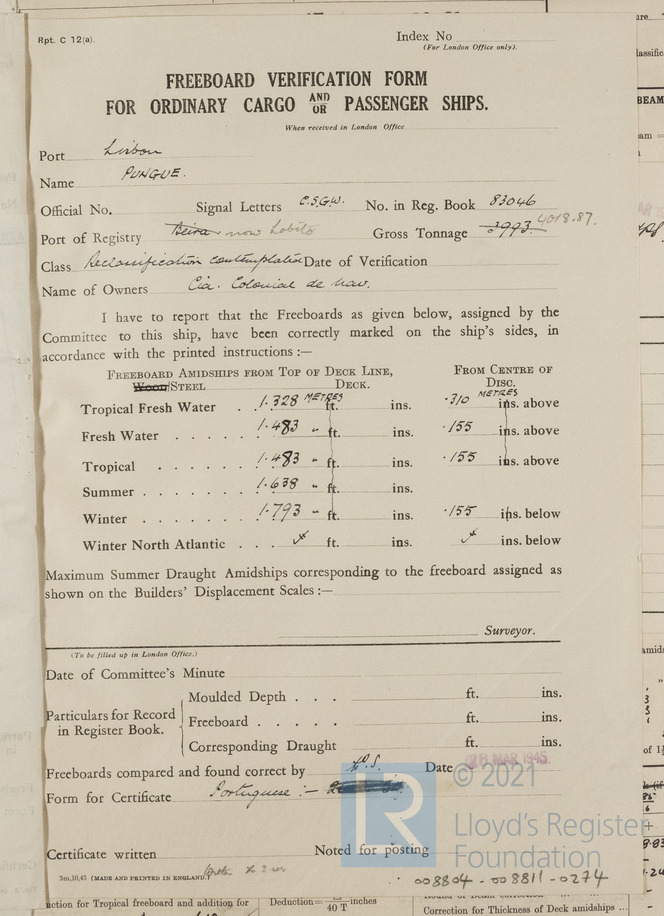 Rpt. C 12(a).
Index No
(For London Office only).
FREEBOARD VERIFICATION FORM
FOR ORDINARY CARGO AND OR PASSENGER SHIPS.
When received in London Office
Port Lisbon
Name PUNGUE.
Official No. Signal Letters C.S.G.W. No. in Reg. Book 83046
Port of Registry Beira now Lobito Gross Tonnage 3993. 4018.87.
Class Reclassification contemplated Date of Verification
Name of Owners Cia. Colonial de Nav.
I have to report that the Freeboards as given below, assigned by the
Committee to this ship, have been correctly marked on the ship's sides, in
accordance with the printed instructions :—
FREEBOARD AMIDSHIPS FROM TOP OF DECK LINE, FROM CENTRE OF
WOOD/STEEL DECK. DISC.
Tropical Fresh Water . 1.328 METRES ft. ins. .310 METRES ins. above
Fresh Water . . . . . . 1.483 " ft. ins. .155 ins. above
Tropical . . . . . . . 1.483 " ft. ins. .155 ins. above
Summer . . . . . . . . 1.638 " ft. ins.
Winter . . . . . . . . 1.793 " ft. ins. .155 ins. below
Winter North Atlantic . . . ft. ins. ins. below
Maximum Summer Draught Amidships corresponding to the freeboard assigned as
shown on the Builders' Displacement Scales :—
Surveyor.
(To be filled up in London Office.)
Date of Committee's Minute
Particulars for Record in Register Book.
Moulded Depth . . . ft. ins.
Freeboard . . . . . ft. ins.
Corresponding Draught ft. ins.
Freeboards compared and found correct by Date 28 MAR 1945
Form for Certificate Portuguese :—
© 2021
LR
Lloyd's Register
Foundation
Certificate written Noted for posting
5m,10,43 (MADE AND PRINTED IN ENGLAND.)
008804 - 008811 - 0274
uction for Tropical freeboard and addition for
Deduction= 40 T inches
Correction for Thickness of Deck amidships ...